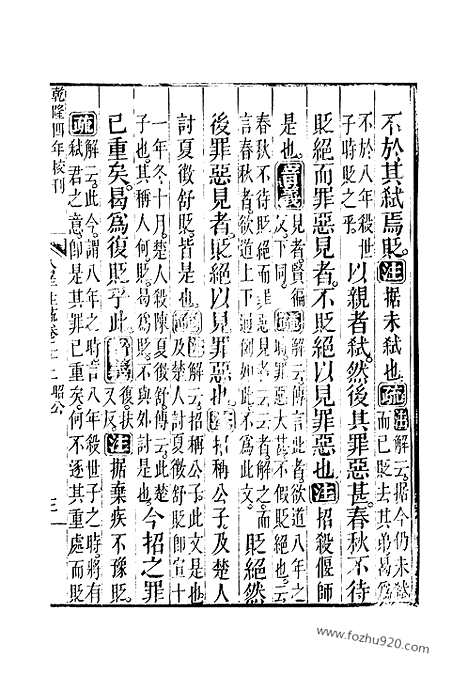 不於其弑焉貶注據未弑也疏注解云據今仍未弑而已貶去其弟曷爲
不於八年殺世子時貶之乎以親者弑然後其罪惡甚春秋不待
貶絕而罪惡見者不貶絕以見罪惡也注招殺偃師
是也音義見者賢徧反下同疏解云春秋傳言此者欲道八年之
春秋不待貶絕罪惡見者云云者解之而貶絕然
言春秋者欲道上下通例如此不爲此文
後罪惡見者貶絕以見罪惡也疏招稱公子及楚人
討夏徵舒貶皆是也疏解云招稱公子此文是也及楚人討夏徵舒貶即宣十
一年冬十月楚人殺陳夏徵舒傳云此楚子也其稱人何貶曷爲貶不與外討是也今招之罪
已重矣曷爲復貶乎此音義復扶又反注據棄疾不豫貶
疏解云此今謂八年之時言八年殺世子之時將有弑君之意即是其罪已重矣何不逐其重處而貶
乾隆四年校刊
公羊注疏卷二十二昭公
三
www.fozhu920.com